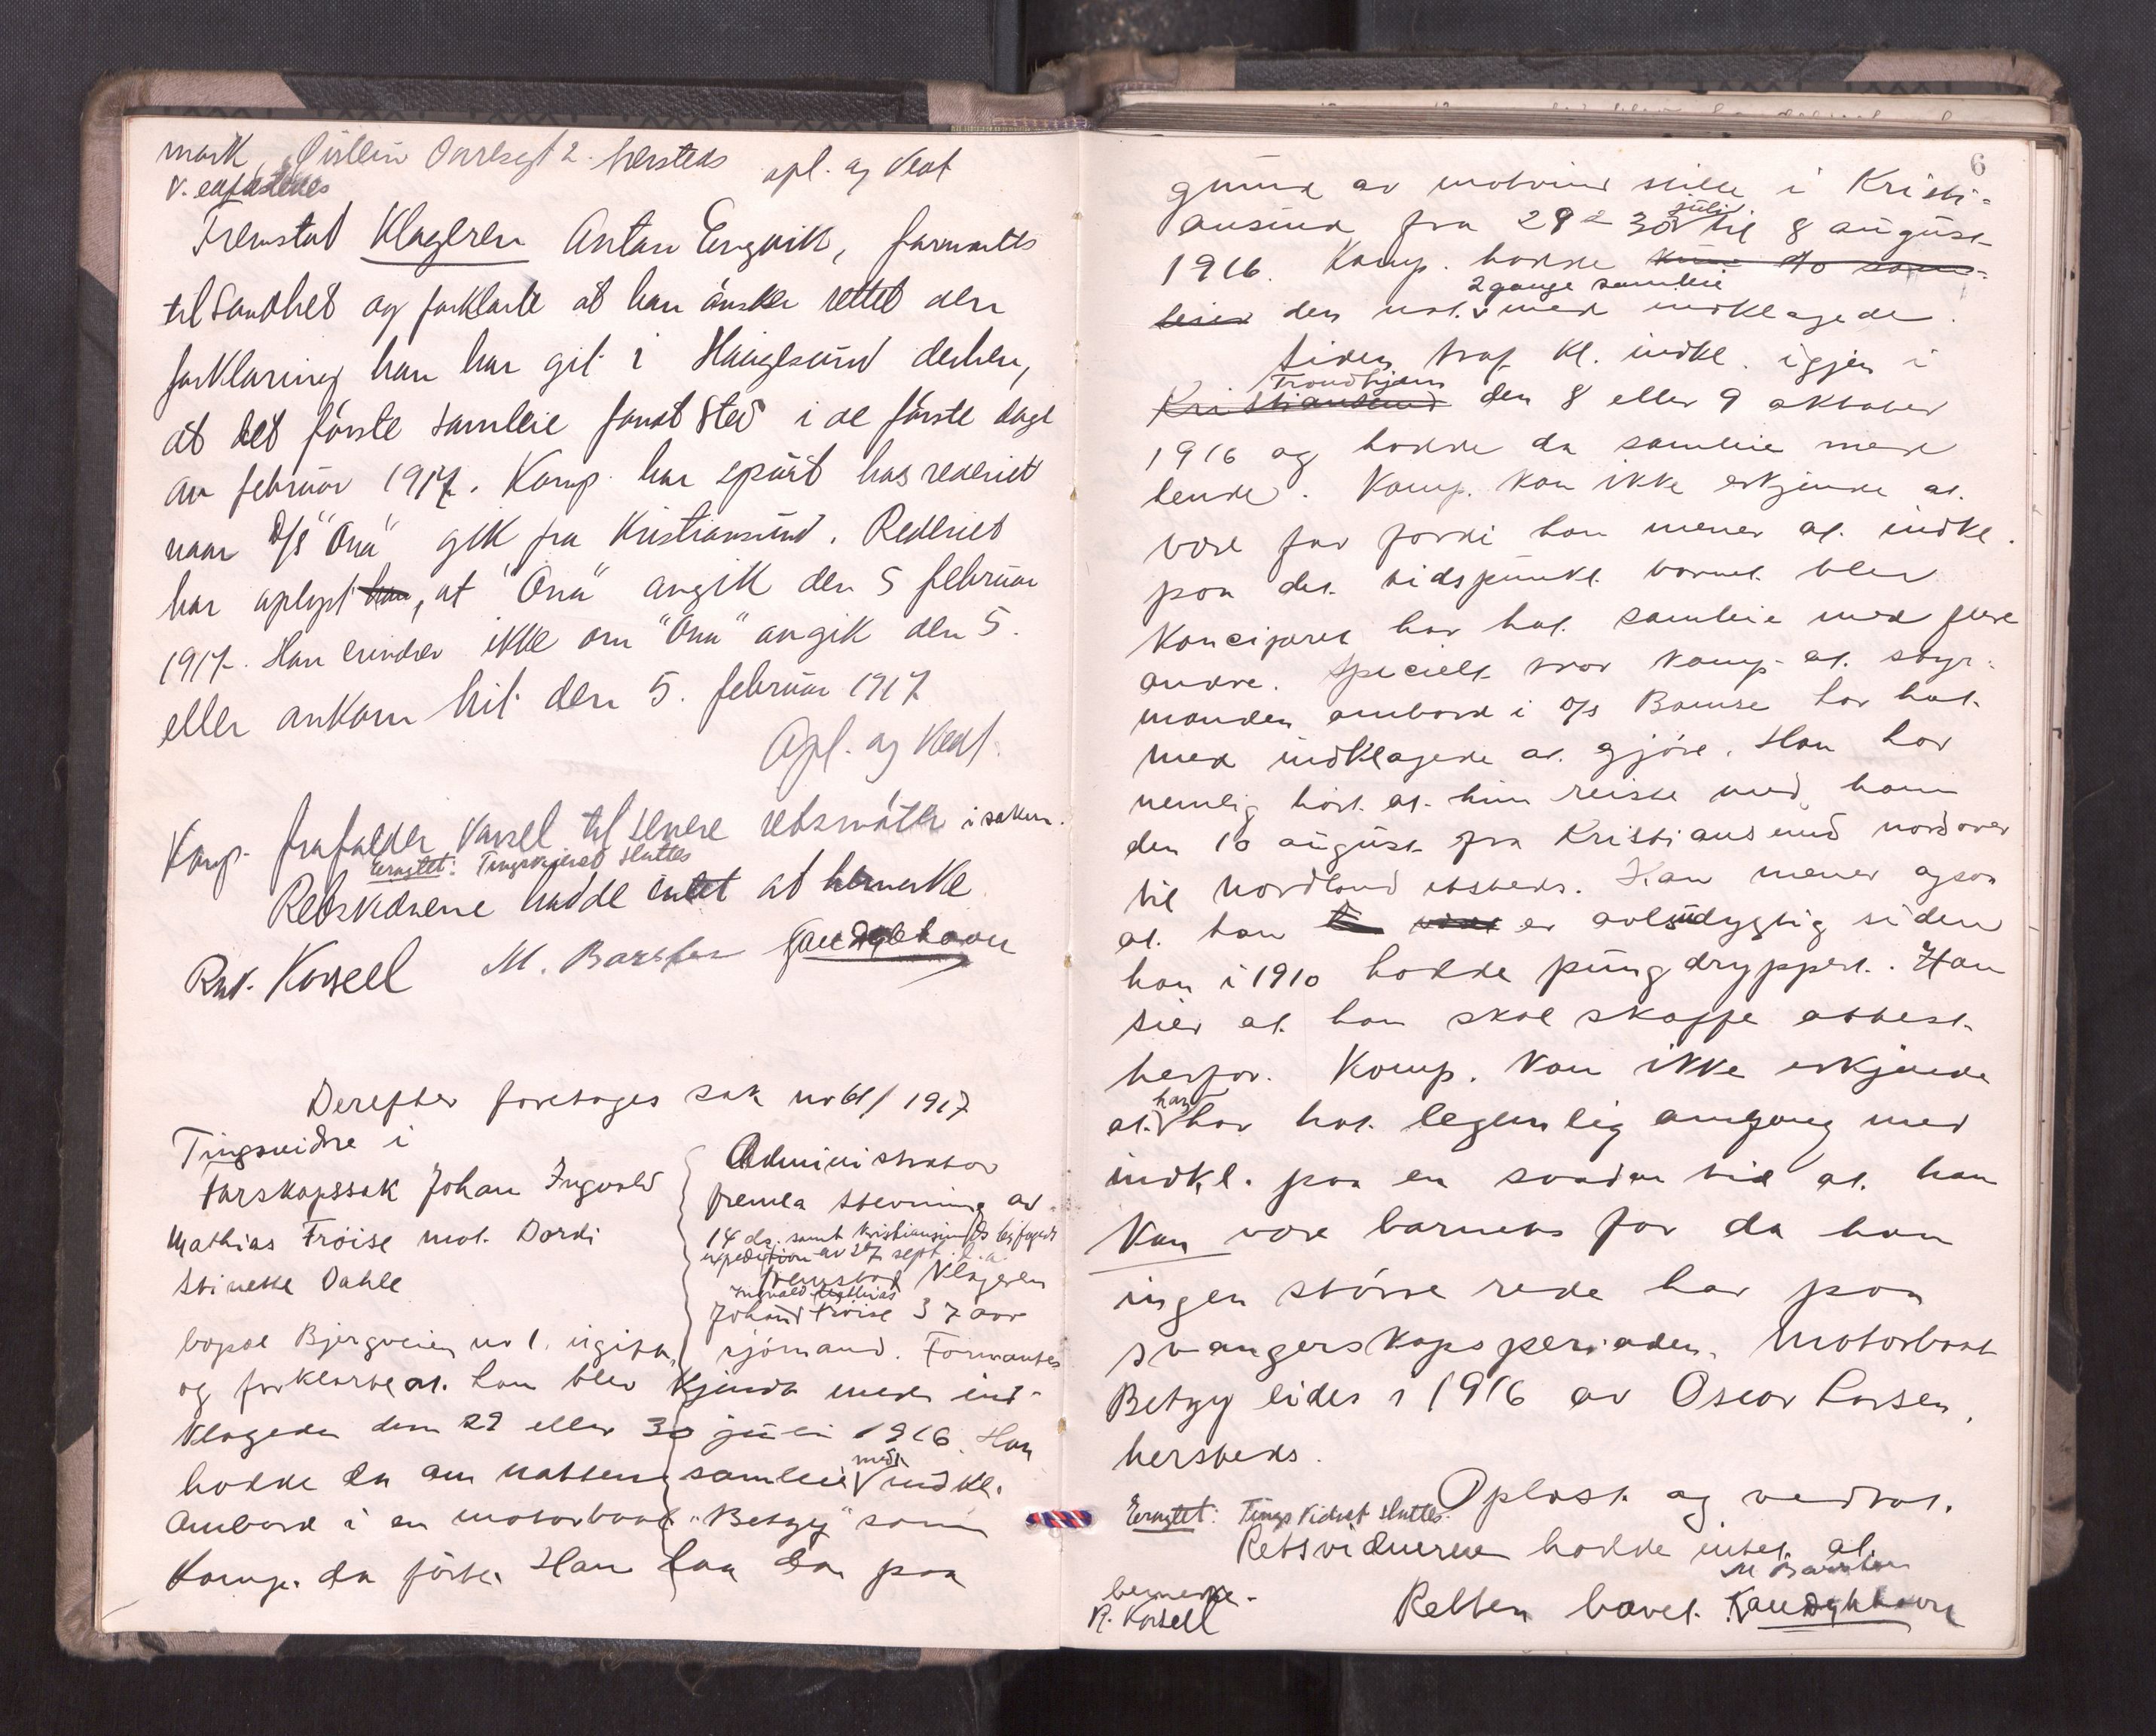 mark, Övlein Onrlsgt 2. hersteds opl. og Vedt
V.
Fremstod Klageren Anton Engvik, formantes
til Sandhet og forklarte at han ønsker rettet den
forklaring han har git i Haugesund derhen,
at det første samleie fandt sted i de første dage
av februar 1917. Komp. har spurt hos rederiet
naar D/S "Ona" gik fra Kristiansund. Rederiet
har oplyst han, at "Ona" avgik den 5 februar
1917. Han erindrer ikke om "Ona" avgik den 5.
eller ankom hit den 5. februar 1917
Opl. og Vedt.
Komp. frafalder Varsel til senere retsmøter i saken.
Eragtet: Tingsvidnet sluttes
Retsvidnerne hadde intet at bemerke
R. Korsell M. Barsten
Derefter foretoges sak nr 61/1917
Tingsvidne i
farskapssak Johan Ingvald
Mathias Frøise mot. Dordi
Stinekke Dahle
Administrator
fremla stevning av
14 ds. samt Kristiansunds byfogds
expedition av 27 sept. d.a.
Fremstod Klageren
Ingvald Mathias
Johan Frøise 37 aar
bopæl Bjergveien nr 1. ugift, sjømand. Formantes
og forklarte at. han blev kjendt med ind-
klagede den 29 eller 30 juli 1916. Han
hadde da om natten samleie med indkl.
ombord i en motorbaat "Betzy" som
Komp. da førte. Han laa da paa
6
grund av motvind stille i Kristi-
ansund fra 29 à 30 juli til 8 august
1916. Komp. hadde
2 gange samleie
den nat. med indklagede.
Siden traf kl. indkl. igjen i
Trondhjem
Kristiansund den 8 eller 9 oktober
1916 og hadde da samleie med
hende. Komp. kan ikke erkjende at.
være far fordi han mener at. indkl.
paa det. tidspunkt barnet blev
konciperet har hat. samleie med flere
andre. Specielt tror komp. at. styr-
manden ombord i D/S Bamse har hat.
med indklagede at. gjøre. Han har
nemlig hørt at. hun reiste med ham
den 10 august fra Kristiansund nordover
til Nordland etsteds. Han mener ogsaa
at. han er avlsudygtig siden
han i 1910 hadde pungdryppert. Han
sier at. han skal skaffe attest.
herfor. Komp. kan ikke erkjende
at. han har hat. legemlig omgang med
indkl. paa en saadan tid at. han
kan være barnets far da han
ingen større rede har paa
svangerskapsperioden. Motorbaat
Betzy eides i 1916 av Oscar Larsen,
hersteds.
Oplæst. og vedtat.
Eragtet: Tingsvidnet sluttes.
Retsvidnerne hadde intet. at.
bemerke. Retten hævet. M Barsten
R. Korsell